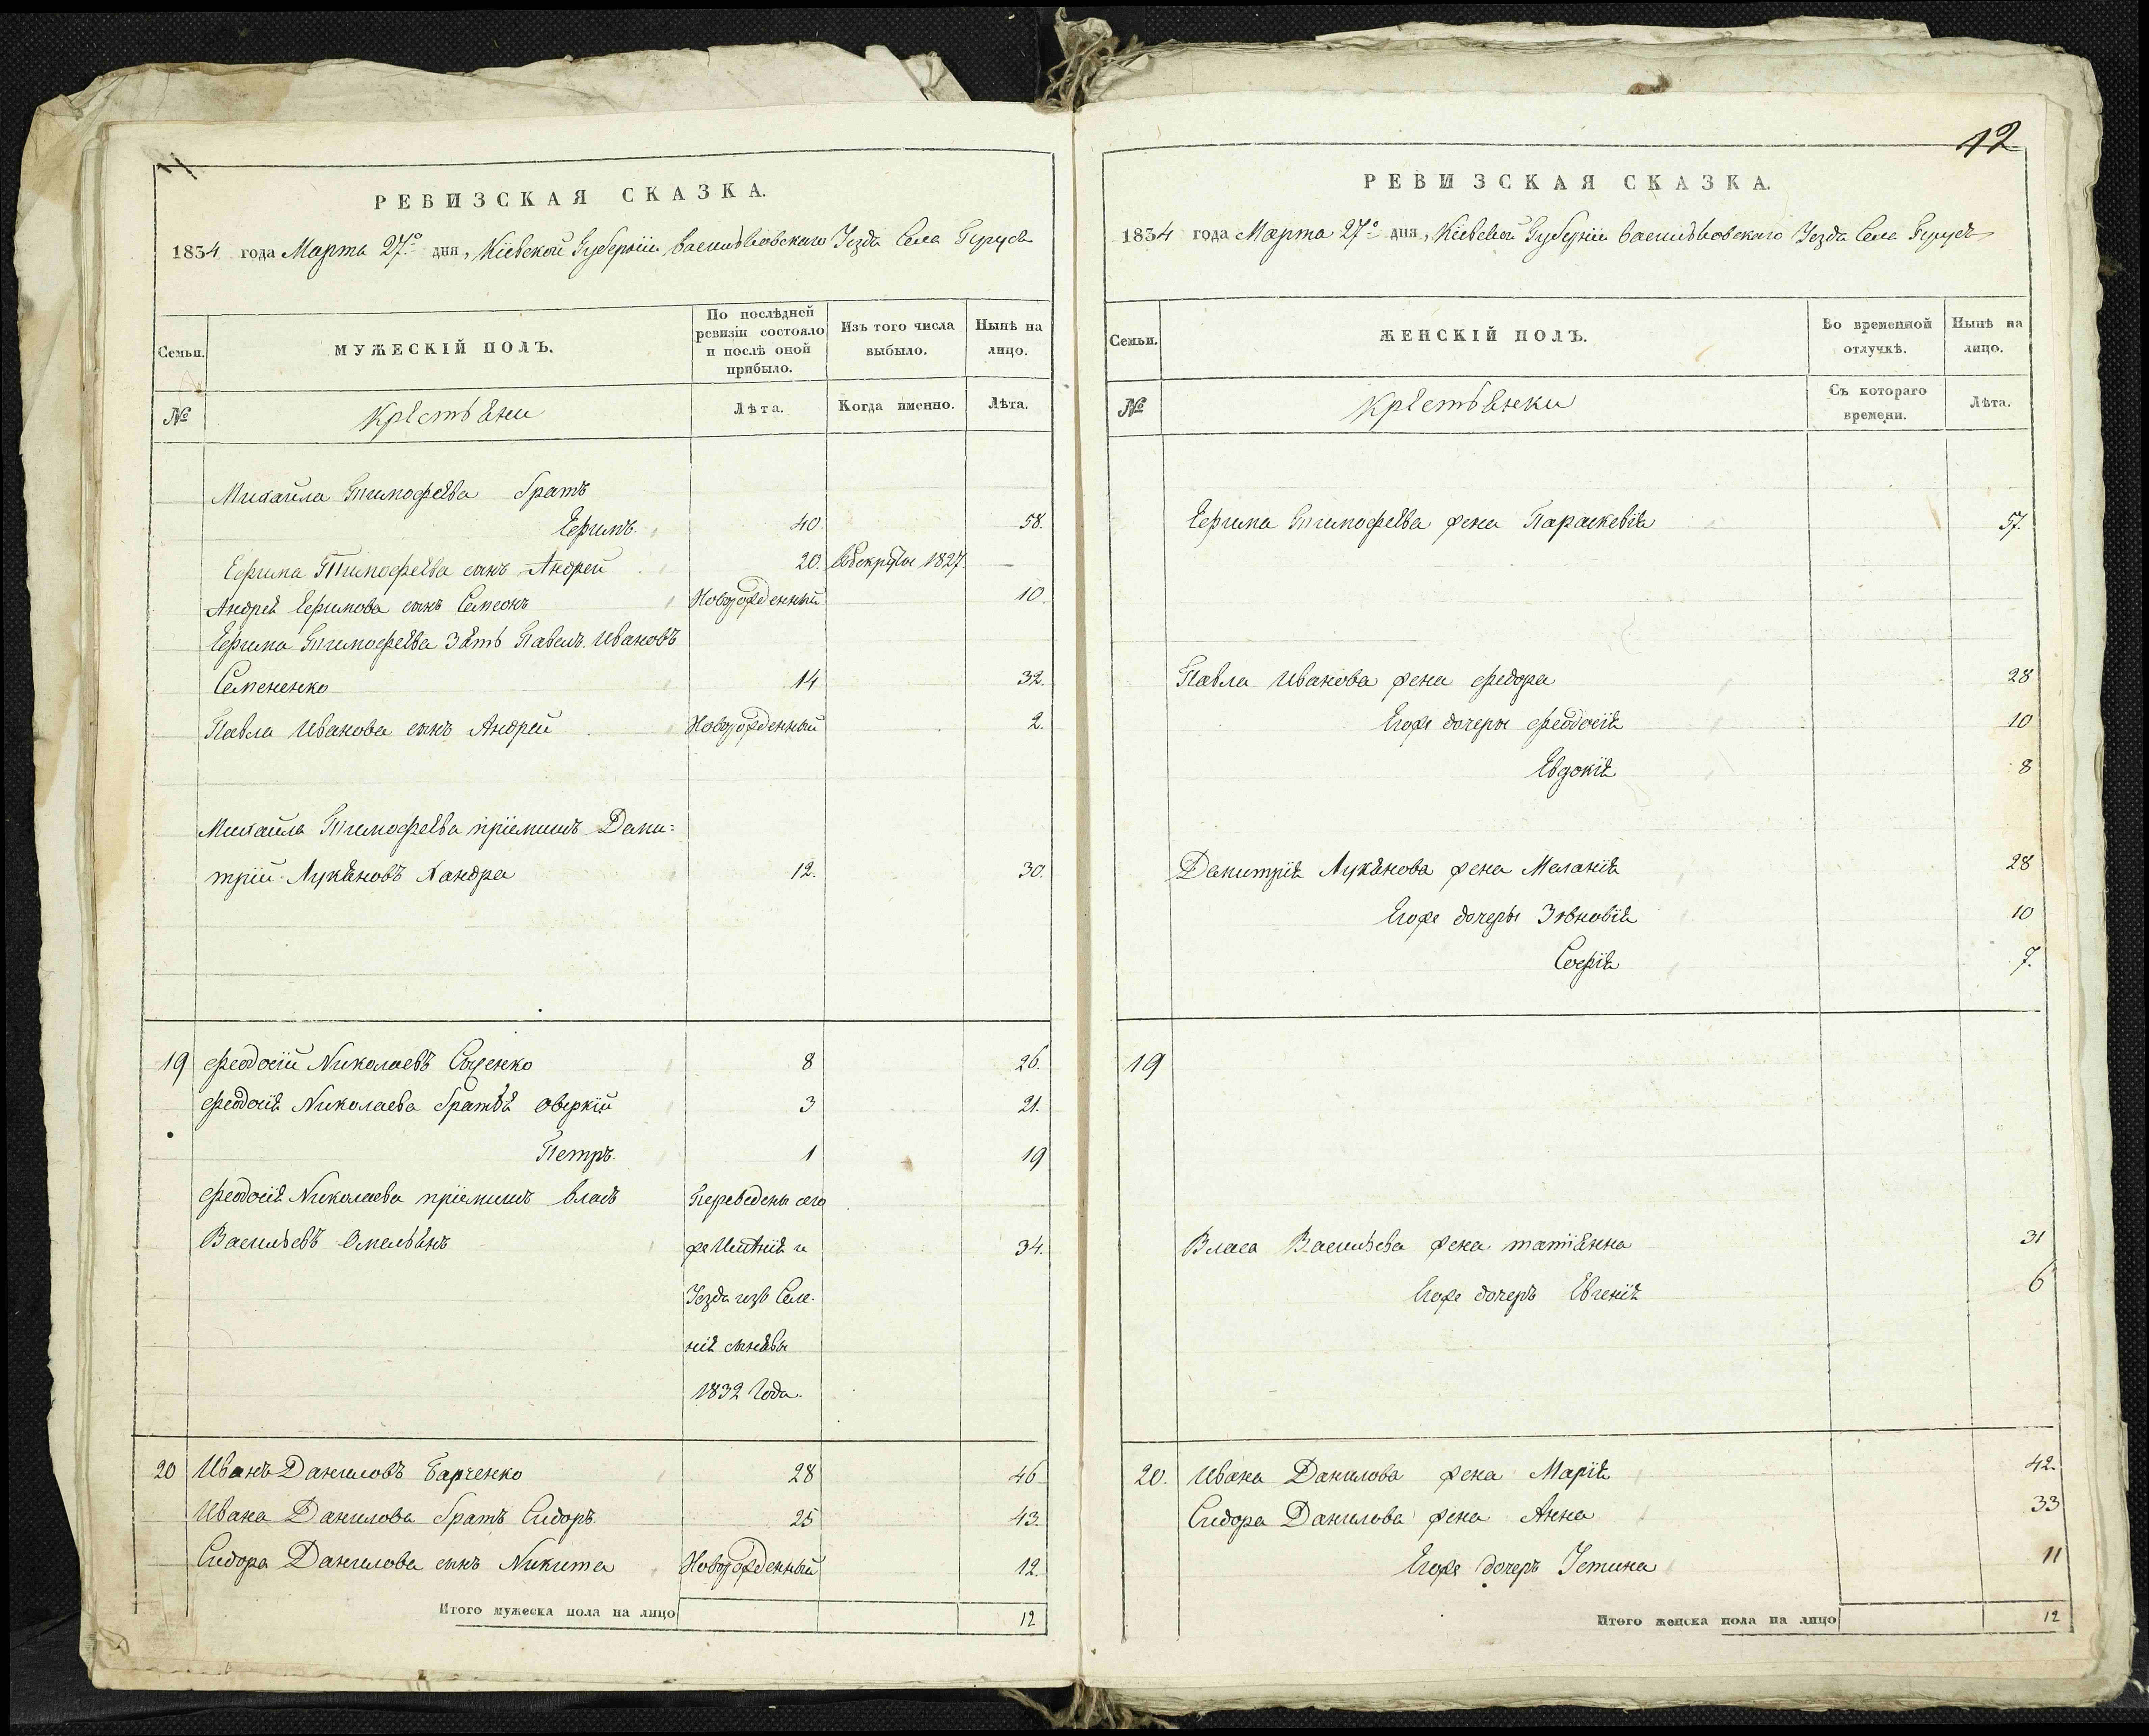 РЕВИЗСКАЯ СКАЗКА.
1834 года Марта 27го дня, Кіевской Губерніи Васильковскаго Уезда Села
Семьи.
МУЖЕСКІЙ ПОЛЪ.
По послѣдней ревизіи состояло и послѣ оной прибыло.
Изъ того числа выбыло.
Нынѣ на лицо.
№
Крестьяни
Лѣта.
Когда именно.
Лѣта.
Михайла Тимофеева братъ
Ефимъ. 40. 58.
Ефима Тимофеева сынъ Андрей 20. 1827. —
Андрея Ефимова сынъ Семеонъ Новорожденный 10.
Ефима Тимофеева Зять Павелъ Ивановъ
Семененко 14 32.
Павла Иванова сынъ Андрей Новорожденный 2.
Михайла Тимофеева пріемишъ Дами=
трій Лукяновъ Хандра 12. 30.
19 Феодосій Николаевъ Соценко 8 26.
Феодосія Николаева братья Оверкій 3 21.
Петръ. 1 19
Феодосія Николаева пріемишъ Власъ Переведенъ сего
Васильевъ Омельянъ же Именія и 34.
Уезда изъ Селе-
нія
1832 Года.
20 Иванъ Даниловъ Барченко 28 46.
Ивана Данилова братъ Сидоръ. 25 43.
Сидора Данилова сынъ Никита Новорожденный 12.
Итого мужеска пола на лицо 12
12
РЕВИЗСКАЯ СКАЗКА.
1834 года Марта 27го дня, Кіевской Губерніи Васильковскаго Уезда Села
Семьи.
ЖЕНСКІЙ ПОЛЪ.
Во временной отлучкѣ.
Нынѣ на лицо.
№
Крестьянки
Съ котораго времени.
Лѣта.
Ефима Тимофеева жена Параскевія 57.
Павла Иванова жена Федора 28
Егоже дочеры Феодосія 10
Евдокія 8
Дамитрія Лукянова жена Меланія 28
Егоже дочеры Зѣновія 10
Софія 7.
19
Власа Васильева жена татіянна 31
Егоже дочеръ Евгенія 6
20. Ивана Данилова жена Марія 42.
Сидора Данилова жена Анна 33
Егоже дочеръ Устина 11
Итого женска пола на лицо 12